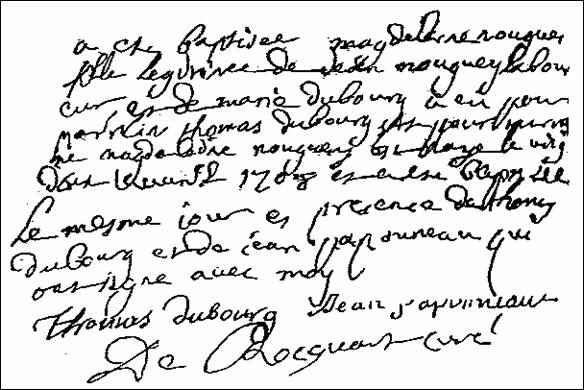 a este baptisee magdelaine nouguey
fille legitime de Jean nouguey labou
eur, et de marie dubourg a eu pour
parrin thomas dubourg et pour marr
ne magdelaine nouguey
1708 et este baptisee
Le mesme jour es presence de thomas
dubourg et de jean papouneau qui
ont signe avec moy
Thomas dubourg Jean papouneau
De Rocquart curé